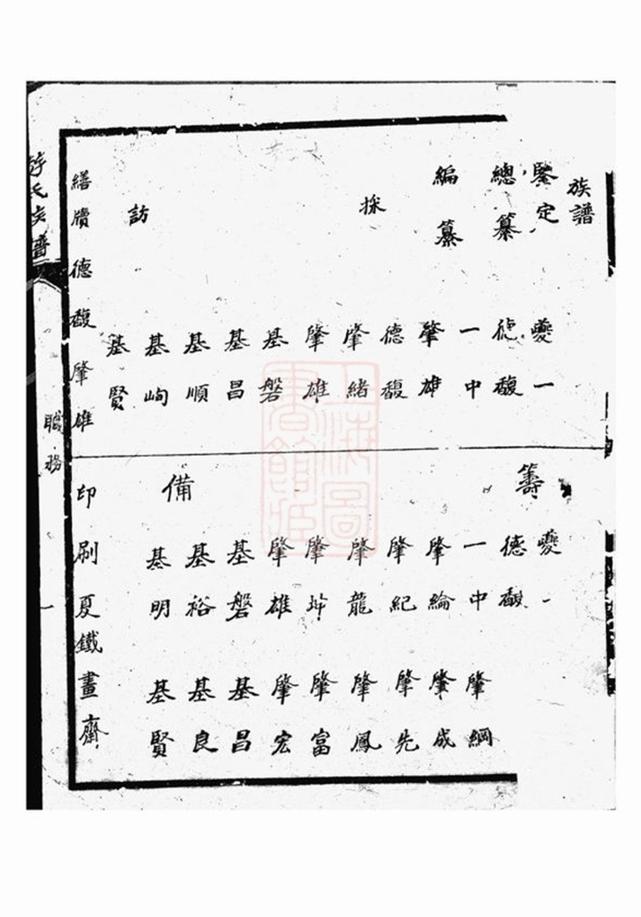 族譜
鑒定 夔一
總纂 德馥
一中
編纂 肇雄
採訪
德馥
肇緒
肇雄
基磐
基昌
基順
基峋
基賢
繕牘 德馥 肇雄
籌備
夔一
德馥
一中 肇綱
肇綸 肇成
肇紀 肇先
肇龍 肇鳳
肇 肇富
肇雄 肇宏
基磐 基昌
基裕 基良
基明 基賢
印刷 夏鐵畫齋
氏支譜
職務
一
上海圖書館藏